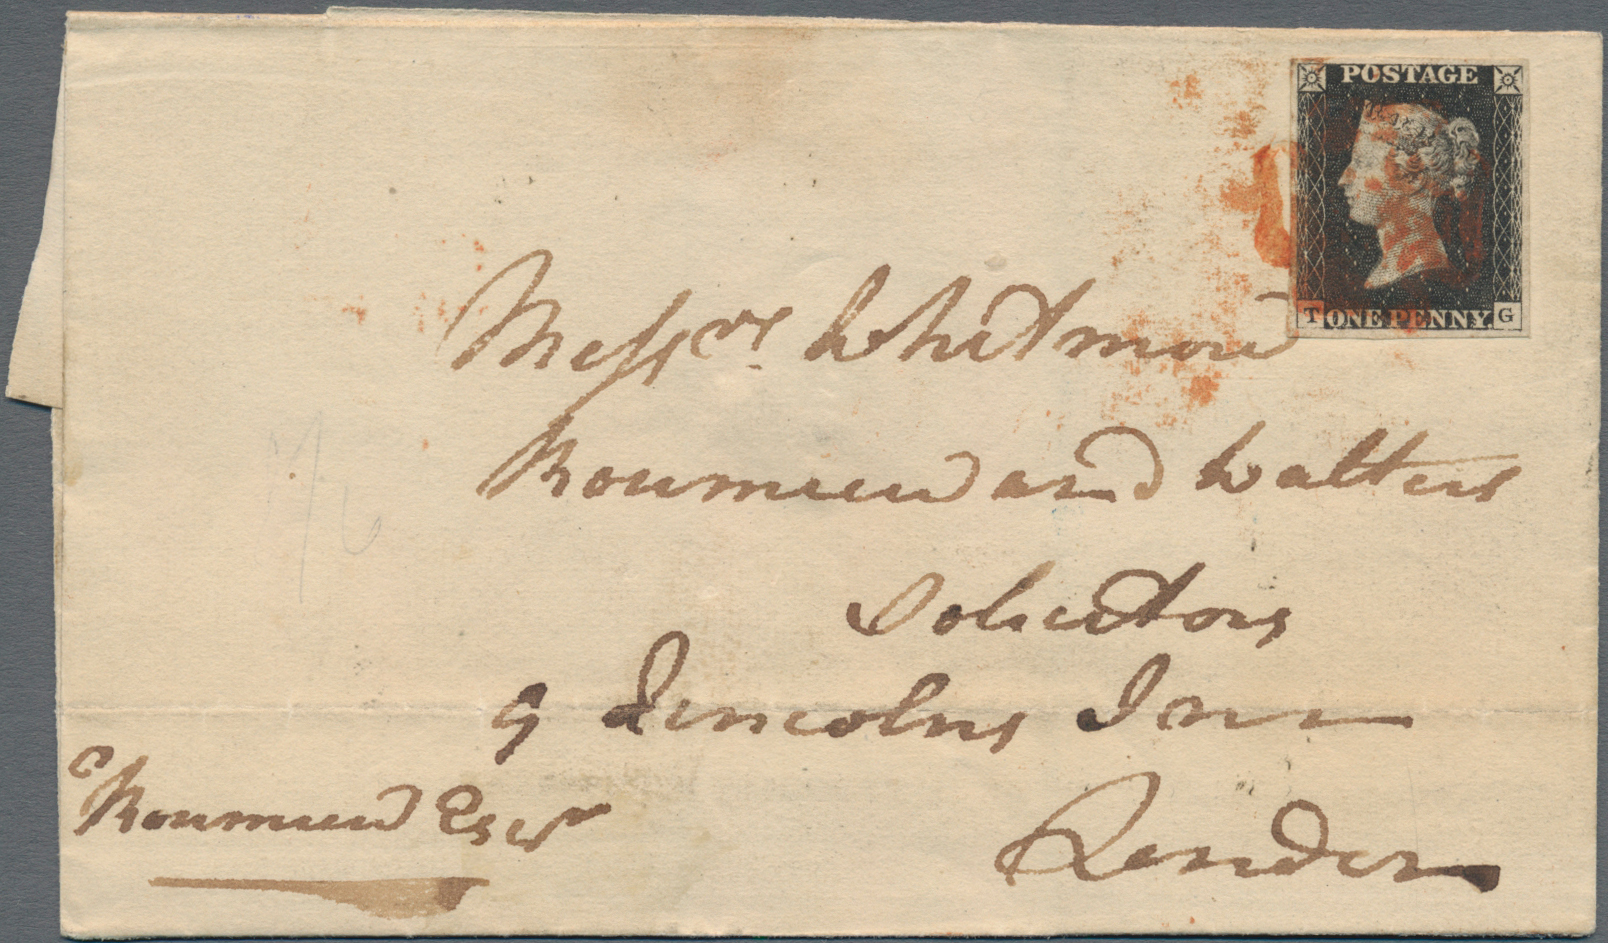 POSTAGE
T ONE PENNY. G
Messrs Whitmore
Roumieu and Walters
Solicitors
9 Lincolns Inn
London
Roumieu Esqr